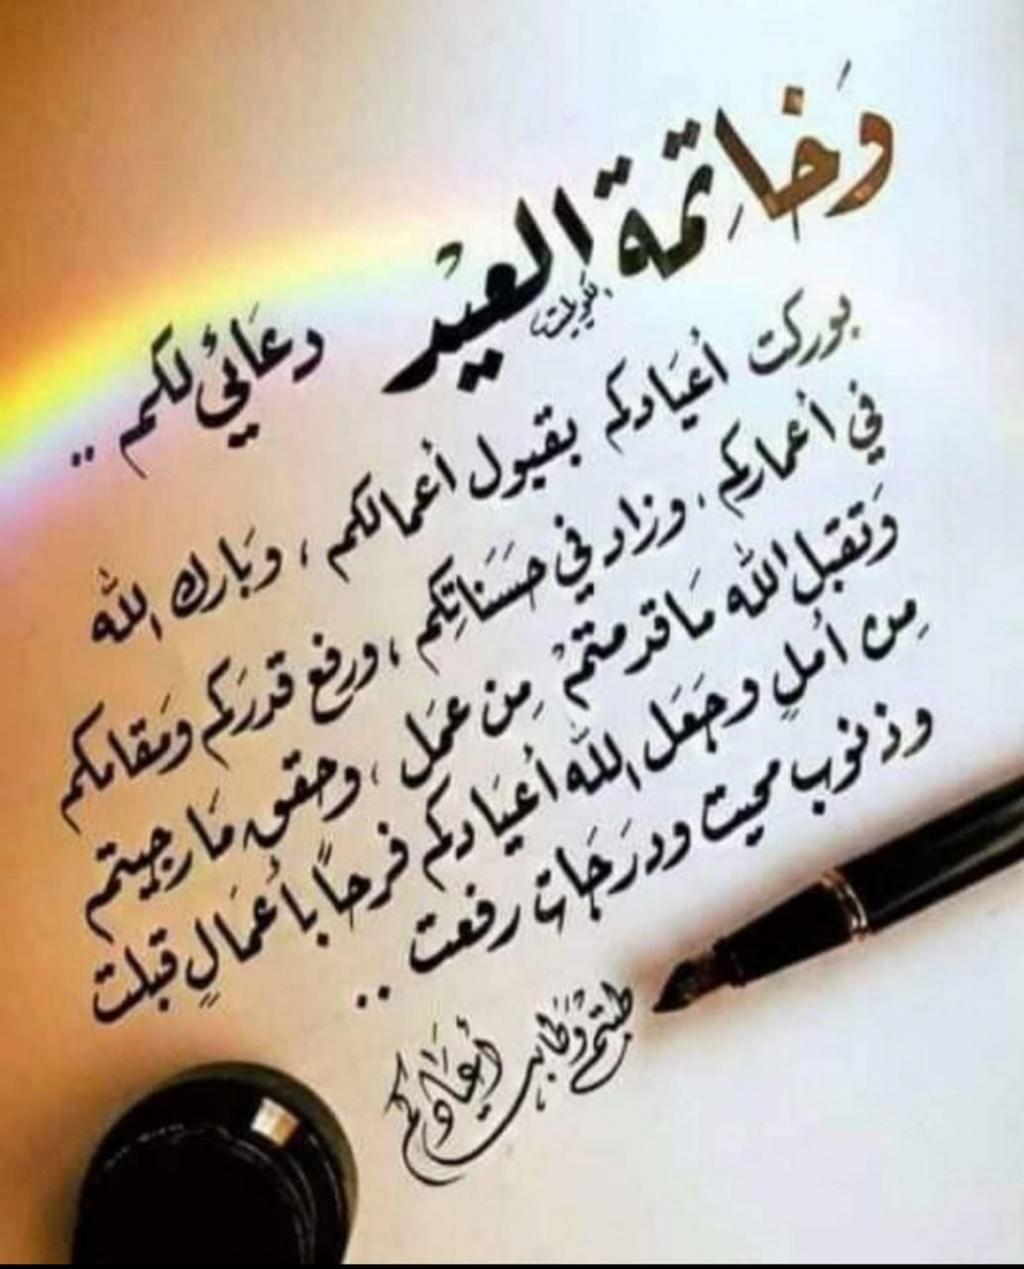 وَخَاتِمة العيْد دعَائيْ لكم ..
بوركت أعيَادكم بقبول أعمالكم ، وبَارك الله
في أعماركم ، وزاد في حسَنَاتِكم ، ورفع قدرَكم ومَقامكم
وَتقبل الله مَا قدمتمْ مِن عمَل ، وحقق مَا رجيتم
مِن أملٍ وجَعَل الله أعيَادكم فرحاً بأعمَالٍ قبلت
وذنوب محيت ودرَجَات رفعت ..
طبتم وَطَابت أعيَادكم